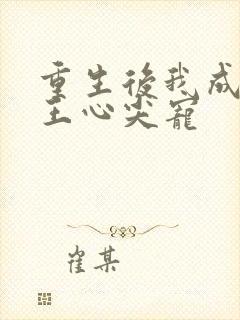 重生後我成
王心尖寵
崔某